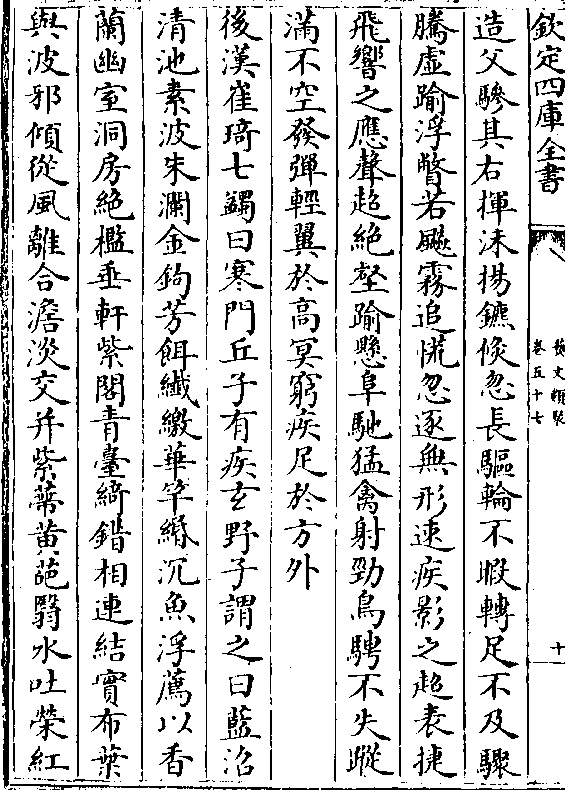 欽定四庫全書
藝文類聚
卷五十七
十
造父驂其右揮沫揚鑣倏忽長驅輪不暇轉足不及驟
騰虛踰浮瞥若飈霧追慌忽逐無形速疾影之超表捷
飛響之應聲超絶壑踰懸阜馳猛禽射勁鳥騁不失蹤
滿不空發彈輕翼於高冥窮疾足於方外
後漢崔琦七蠲曰寒門丘子有疾玄野子謂之曰藍沼
清池素波朱瀾金鉤芳餌纖繳華竿緡沉魚浮薦以香
蘭幽室洞房絶檻垂軒紫閣青臺綺錯相連結實布葉
與波邪傾從風離合澹淡交并紫蔕黄葩翳水吐榮紅